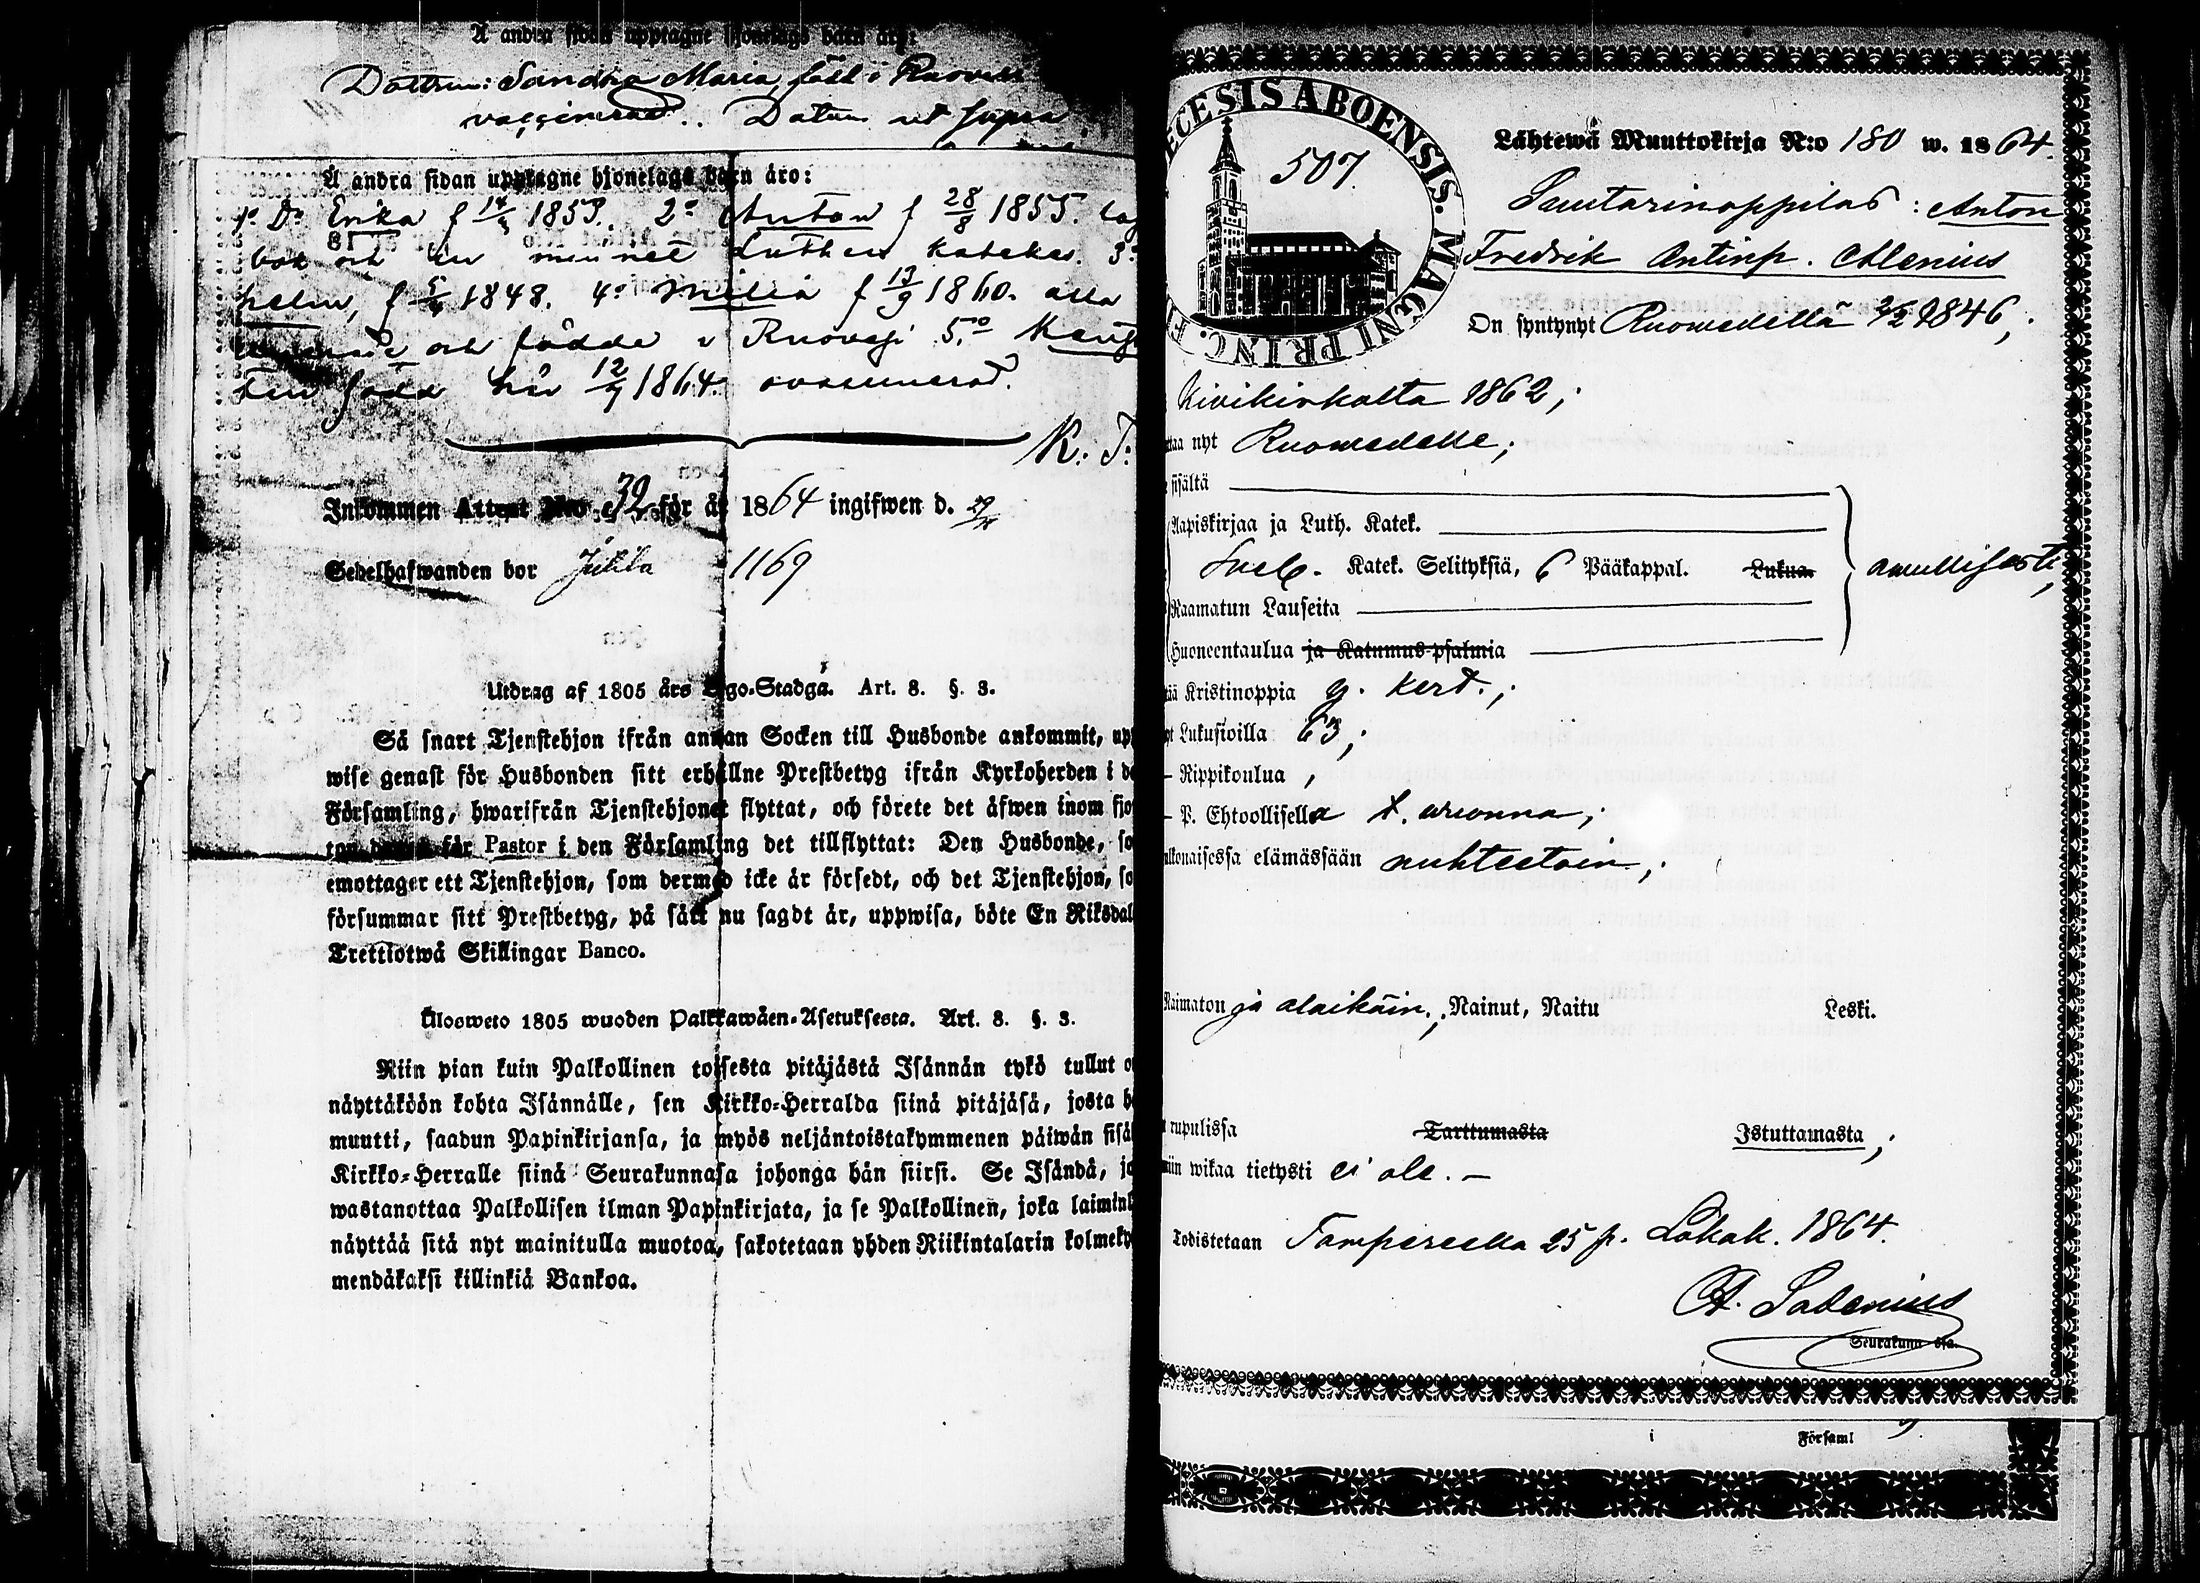 Å andra sidan upptagne hjonelags barn äro:
Dottren: Sandra Maria, född i Ruovesi
vaccinerad.. Datum ut supra
Å andra sidan upptagne hjonelags barn äro:
1o Dr Erika f 14/5 1853. 2o Anton f 28/8 1855.
bok och ur minnet Luthers katekes. 3o
helm, f 5/4 1848. 4o Milia f 13/9 1860. alla
och födde i Ruovesi 5o
ten född här 12/7 1864. ovaccinerad.
K. T.
Inkommen Attest Nro 32 för år 1864 ingifwen d. 29/11
Sedelhafwanden bor Jutila 1169
Utdrag af 1805 års Lego-Stadga. Art. 8. §. 3.
Så snart Tjenstehjon ifrån annan Socken till Husbonde ankommit, upp
wise genast för Husbonden sitt erhållne Prestbetyg ifrån Kyrkoherden i de
Församling, hwarifrån Tjenstehjonet flyttat, och förete det äfwen inom fjo
ton dagar för Pastor i den Församling det tillflyttat: Den Husbonde, so
emottager ett Tjenstehjon, som dermed icke är försedt, och det Tjenstehjon, so
försummar sitt Prestbetyg, på sätt nu sagdt är, uppwisa, böte En Riksdal
Trettiotwå Skillingar Banco.
Ulosweto 1805 wuoden Palkkawäen-Asetuksesta. Art. 8. §. 3.
Niin pian kuin Palkollinen toisesta pitäjästä Isännän tykö tullut o
näyttäköön kohta Isännälle, sen Kirkko-Herralda siinä pitäjäsä, josta h
muutti, saadun Papinkirjansa, ja myös neljäntoistakymmenen päiwän sisä
Kirkko-Herralle siinä Seurakunnasa johonga hän siirsi. Se Isändä, jo
wastanottaa Palkollisen ilman Papinkirjata, ja se Palkollinen, joka laiminl
näyttää sitä nyt mainitulla muotoa, sakotetaan yhden Riikintalarin kolmeky
mendäkaksi killinkiä Bankoa.
ECESIS ABOENSIS. MAGNI PRINC. F
507.
Lähtewä Muuttokirja N:o 180 w. 1864.
Santarinoppilas: Anton
Fredrik Antinp. Alenius
On syntynyt Ruowedellä 3/2 1846,
Kivikirkolta 1862;
taa nyt Ruowedelle;
sisältä
Aapiskirjaa ja Luth. Katek.
Sveb. Katek. Selityksiä, 6 Pääkappal. Lukua. awullisesti,
Raamatun Lauseita
Huoneentaulua ja Katumus-psalmia
tää Kristinoppia y. kert.;
yt Lukusioilla 63;
– Rippikoulua ,
– P. Ehtoollisella t. wuonna;
ulkonaisessa elämässään nuhteetoin,;
Naimaton ja alaikäin.; Nainut, Naitu Leski.
t rupulissa Tarttumasta Istuttamasta;
niin wikaa tietysti ei ole. –
Todistetaan Tampereella 25 p. Lokak. 1864.
A. Sadenius
Seurakunnassa.
i Församl